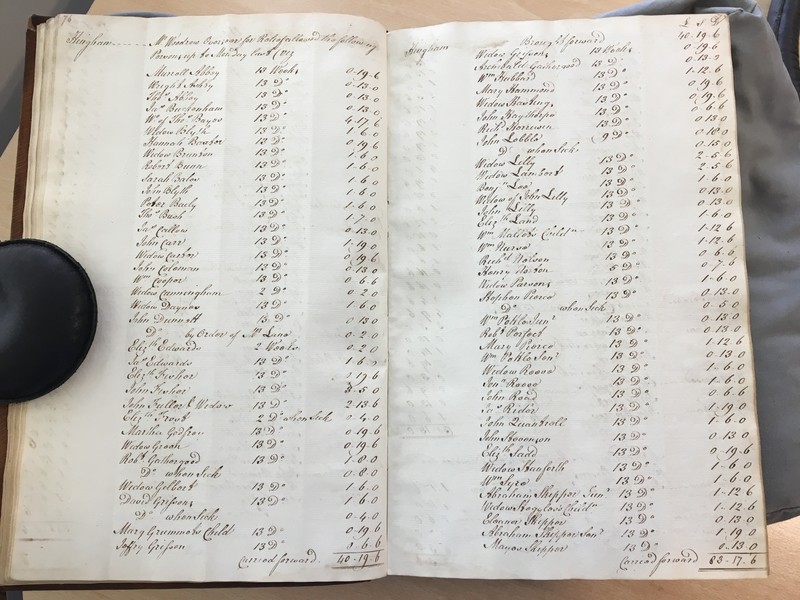 76
Hingham Mr Woodrow Overseer for Relief allowed the following
Persons, up to Monday last (Viz
Marrott Abbry 13 Weeks 0-19-6
Wright Aubry 13 Do 0-13-0
Thos Abbry 13 Do 0-13-0
Jas Buckenham 13 Do 0-13-0
Wo of Thos Bayes 13 Do 4-17-6
Widow Blyth 13 Do 1-6-0
Hannah Baxter 13 Do 0-19-6
Widow Brunton 13 Do 1-6-0
Robert Bunn 13 Do 1-6-0
Sarah Bales 13 Do 1-6-0
John Blyth 13 Do 1-6-0
Peter Baily 13 Do 1-6-0
Thos Bush 13 Do 1-7-0
Jas Callow 13 Do 0-13-0
John Carr 13 Do 1-19-0
Widow Carter 13 Do 0-19-6
John Coleman 13 Do 0-13-0
Wm Cooper 13 Do 0-6-6
Widow Cunningham 2 Do 0-2-0
Widow Daynes 13 Do 1-6-0
John Dunnett 13 Do 0-13-0
Do by Order of Mr Lane 0-2-0
Elizth Edwards 2 Weeks 0-2-0
Jas Edwards 13 Do 1-6-0
Elizth Fisher 13 Do 1-19-6
John Fisher 13 Do
John Fuller & Widow 13 Do 2-13-6
Elizth Frost 2 Do when Sick 0-4-0
Martha Godfrey 13 Do 0-19-6
Widow Green 13 Do 0-19-6
Robt Gathergood 13 Do 1-8-0
Do when Sick 0-8-0
Widow Gilbert 13 Do 1-6-0
David Grissons 13 Do 1-6-0
Do when Sick 0-4-0
Mary Grummets Child 13 Do 0-19-6
Jeffry Grisson 13 Do 0-6-6
Carried forward 40-19-6
Hingham Brought forward £ S D
40-19-6
Widow Grisson 13 Weeks 0-19-6
Gathergood 13 Do 0-13-3
Wm Hubbard 13 Do 1-12-6
Mary Hammond 13 Do 0-19-6
Widow Hawling 13 Do 0-19-6
John Haythorpe 13 Do 0-6-6
Richd Harrwin 13 Do 0-13-0
John Lebble 9 Do 0-18-0
Do when Sick 0-15-0
Widow Lilly 13 Do 2-5-6
Widow Lambert 13 Do 2-5-6
Benjn Lee 13 Do 1-6-0
Widow of John Lilly 13 Do 1-6-0
John Lilly 13 Do 0-13-0
Elizth Land 13 Do 1-6-0
Wm Malletts Childn 13 Do 1-12-6
Wm Nurse 13 Do 1-12-6
Richd Nelson 13 Do 0-6-6
Henry 5 Do 0-7-6
Widow Parsons 13 Do 1-6-0
Stephen Pearce 13 Do 0-13-0
Do when Sick 0-5-0
Wm Peklo Junr 13 Do 0-13-0
Robt Perfect 13 Do 0-13-0
Mary Pierce 13 Do 1-12-6
Wm Peklo Senr 13 Do 0-13-0
Widow Reeve 13 Do 1-6-0
Jonn Reeve 13 Do 1-6-0
John Read 13 Do 0-6-6
Jas Rider 13 Do 1-19-0
John Quantrell 13 Do 1-6-0
John Stevenson 13 Do 0-13-0
Elizth Sadd 13 Do 0-19-6
Widow Stanforth 13 Do 1-6-0
Wm Syer 13 Do 1-6-0
Abraham Skipper Junr 13 Do 1-12-6
Widow Childn 13 Do 1-12-6
Eleanor Skipper 13 Do 0-13-0
Abraham Skipper Senr 13 Do 1-19-0
Mayes Skipper 13 Do 0-13-0
Carried forward 83-17-6